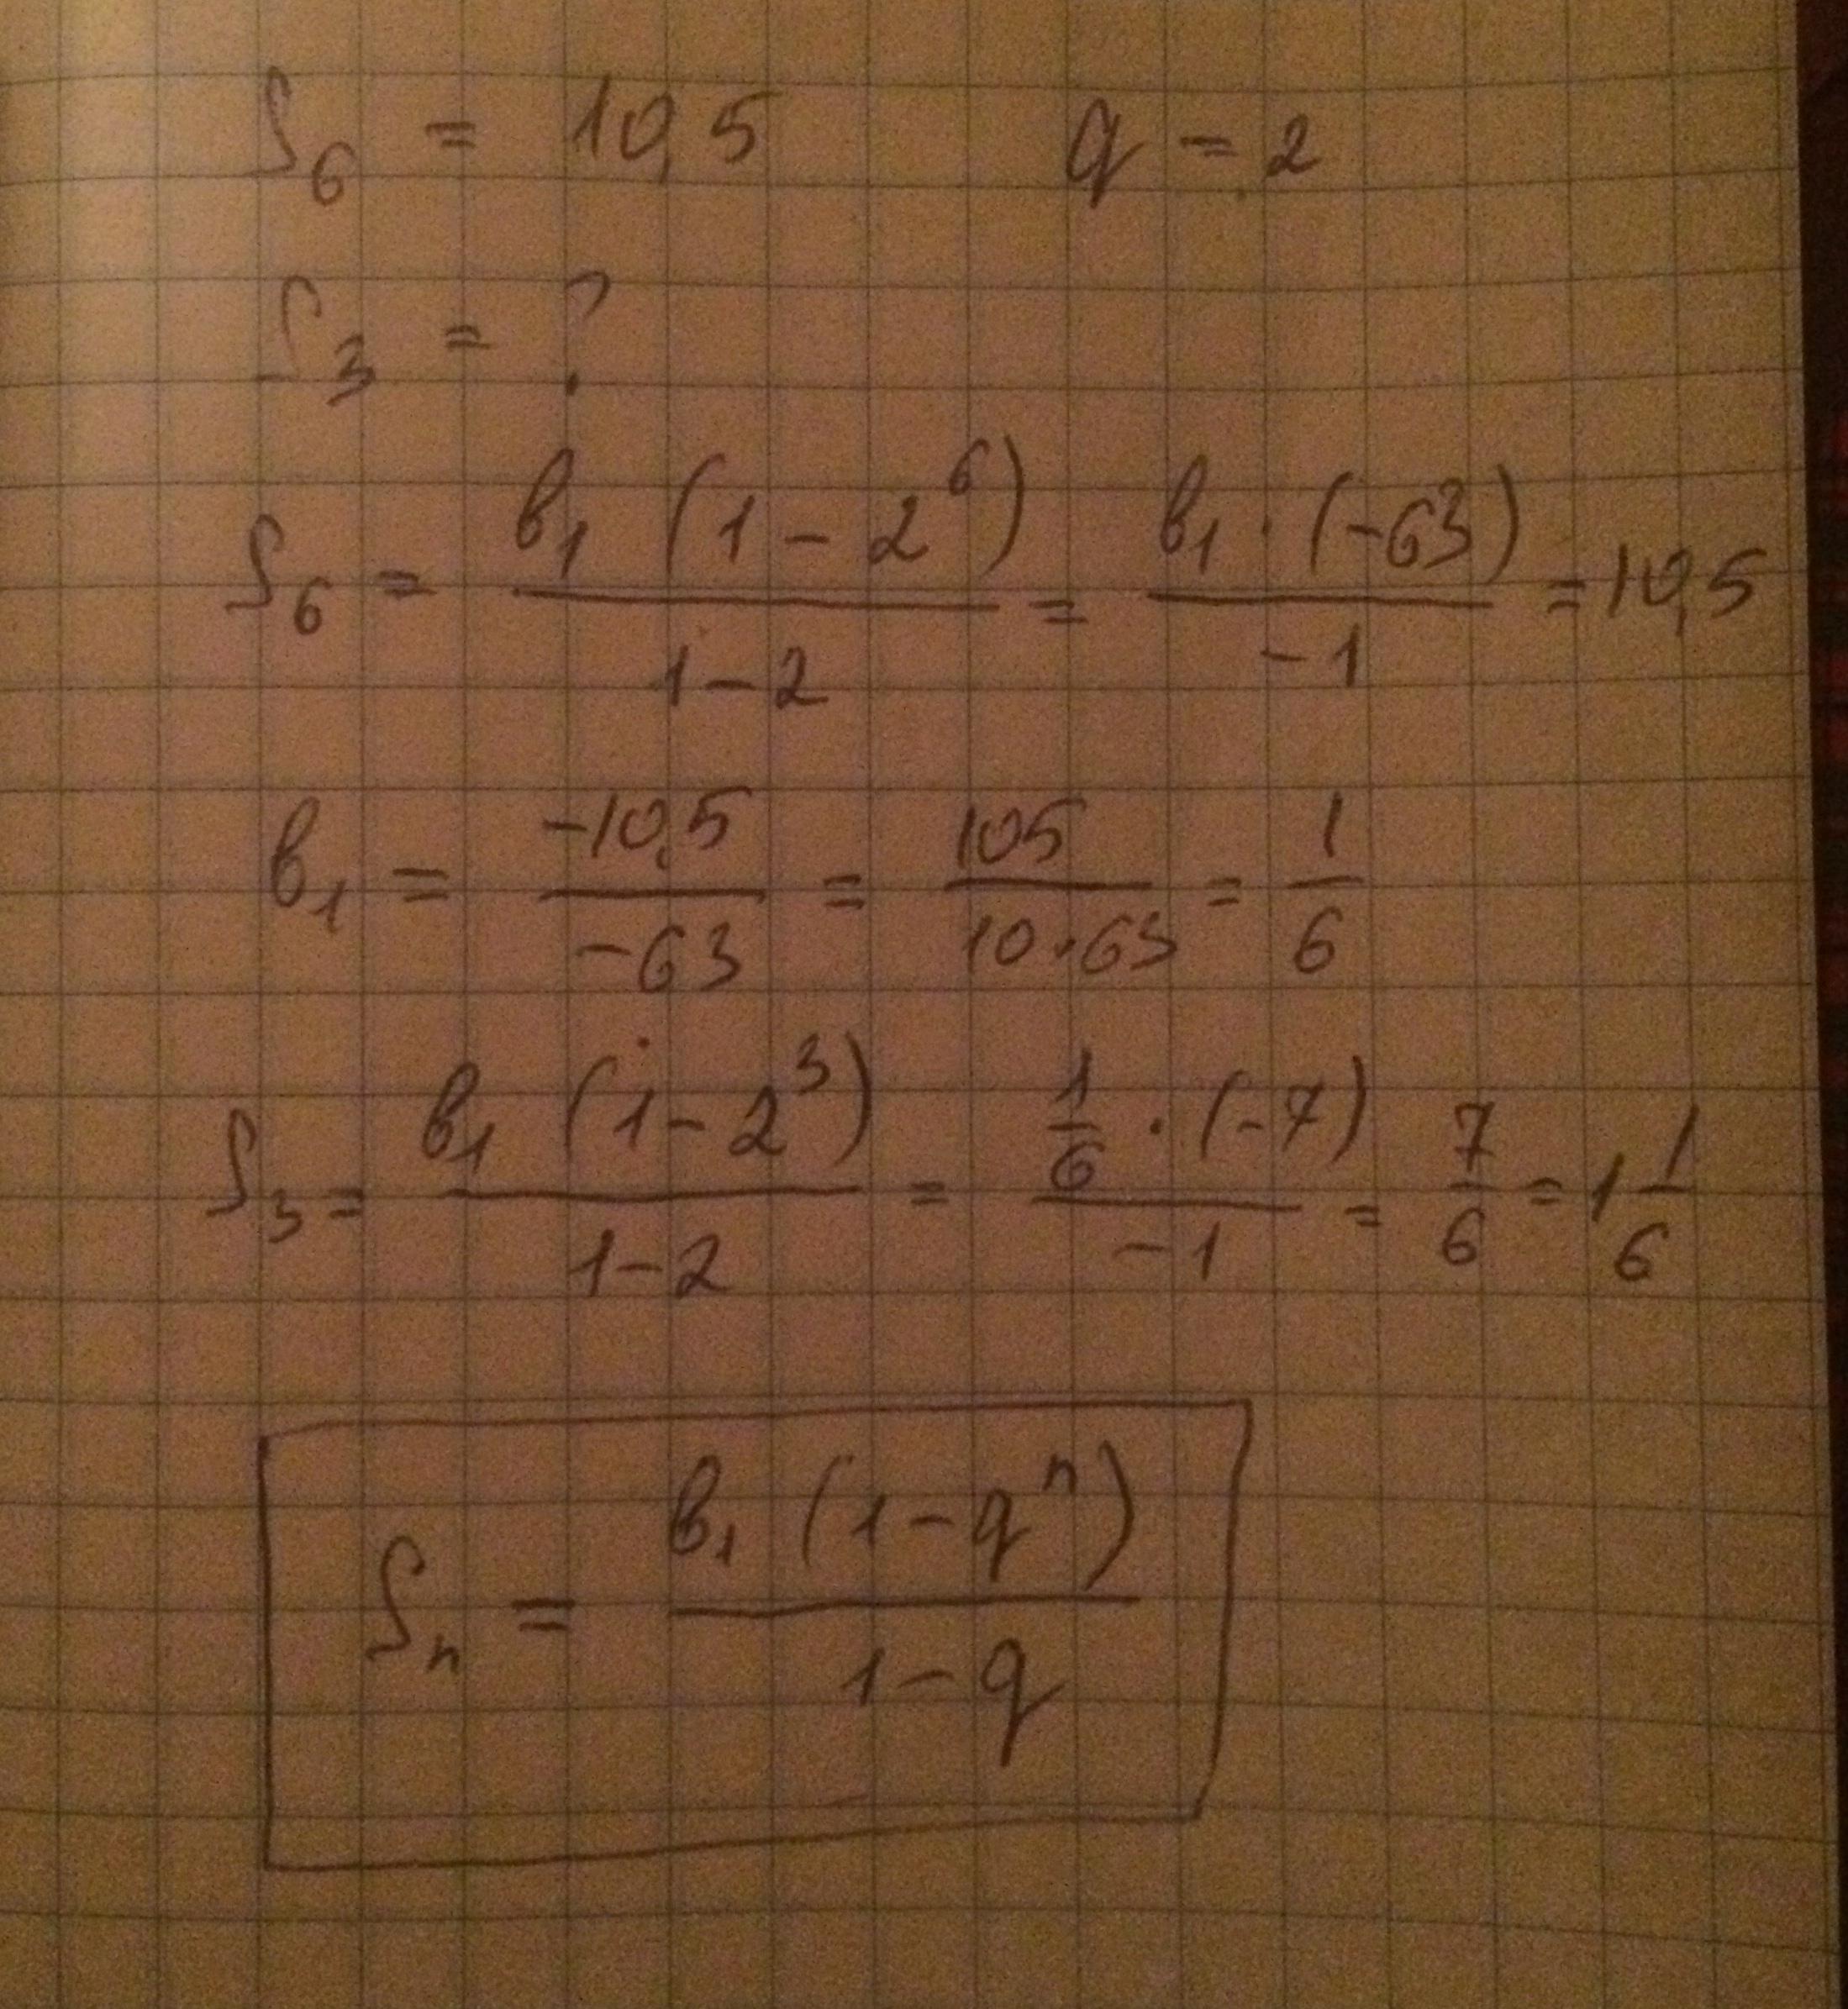 S₆ = 10,5 q = 2
S₃ = ?
S₆ = b₁ (1 - 2⁶) / (1 - 2) = b₁ · (-63) / -1 = 10,5
b₁ = -10,5 / -63 = 105 / (10 · 63) = 1/6
S₃ = b₁ (1 - 2³) / (1 - 2) = 1/6 · (-7) / -1 = 7/6 = 1 1/6
Sₙ = b₁ (1 - qⁿ) / (1 - q)